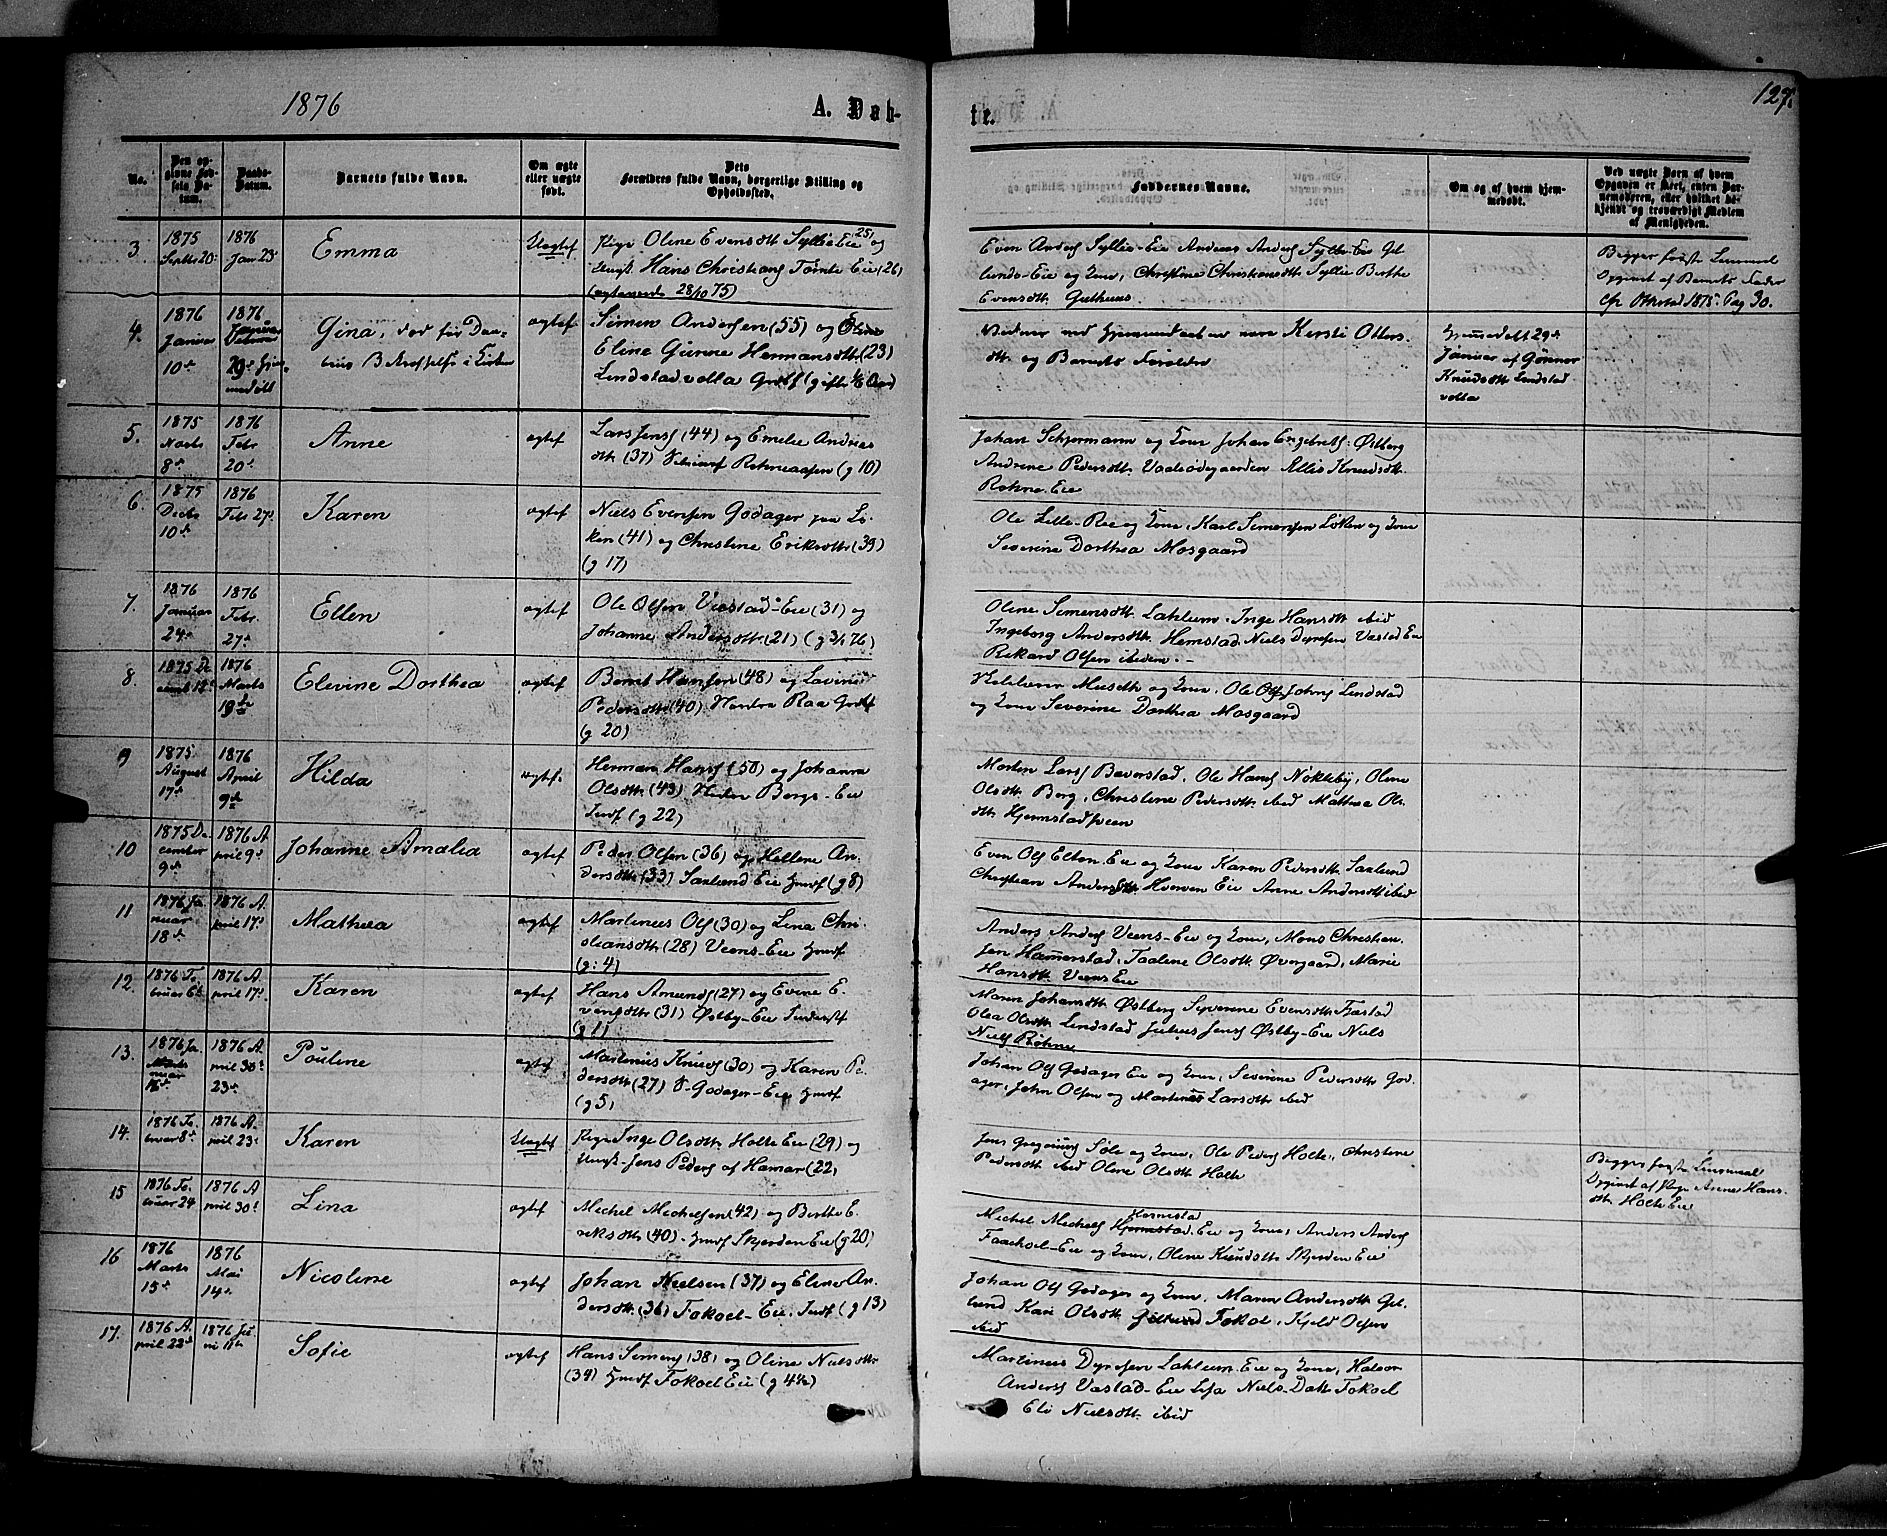 1876
A. Dab-
te.
127.
No.
Den op-
givne Fød-
sels Da-
tum.
Daabs-
Datum.
Barnets fulde Navn.
Om ægte
eller uægte
født.
Dets
Forældres fulde Navn, borgerlige Stilling og
Opholdssted.
Faddernes Navne.
Om og af hvem hjem-
medøbt.
Ved uægte Børn af hvem
Opgaven er skeet, enten Bar-
nemoderen, eller hvilket be-
kjendt og troværdigt Medlem
af Menigheden.
3.
1875
Septbr 20
1876
Jan 23
Emma
Uægtef
Pige Oline Evensdtr Syllie Eie 25 og
Ungk. Hans Christians Tomte Eie (26)
(ægteviede 28/10 75)
Even Anders Syllie-Eie Anders Anders Syllie-Eie
Lunds-Eie og Kone, Christine Christiansdtr Syllie Berthe
Evensdtr.
Begges første Leiermaal
Opgivet af Barnets Fader
cfr Ottestad 1875 Pag 30.
4.
1876
Januar
10de
1876
Januar
29de Hjem-
medøbt
Gina, død før Daa-
bens Bekræftelse i Kirken
ægtef
Simen Andersen (55) og
Eline Gunne Hermansdtr. (23)
Lindstadvolla
Vidner ved Hjemmedaaben vare Kersti Otters-
dtr. og Barnets Forældre
Hjemmedøbt 29de
Januar af Gønner
Knudsdtr Lindstad
volla
5.
1875
Novbr
8de
1876
Febr
20de
Anne
ægtef
Lars Jens (44) og Emelie Andreas
dtr. (37) (g 10)
Johan Schjermann og Kone Johan Engebrets: Østberg
Andrine Pedersdtr. Vaalsødegaarden Ellis Knudsdtr.
Rohne-Eie
6.
1875
Decbr
10de
1876
Febr 27de
Karen
ægtef
Niels Evensen Godager paa Lø-
ken (41) og Christine Eriksdtr. (39)
(g 17)
Ole Lille-Roe og Kone, Karl Simensen Løken og Kone
Severine Dorthea Mosgaard
7.
1876
Januar
24de
1876
Febr.
27de
Ellen
ægtef
Ole Olsen Vaastad-Eie (31) og
Johanne Andersdtr. (21) (g 3/1 76)
Oline Simensdtr. Lahlum. Inge Hansdtr ibid
Ingeborg Andersdtr. Hemstad. Niels Dyresen Vastad Eie
Rikard Olsen ibidem.-
8.
1875 De
cemb 12te
1876
Marts
19de
Elevine Dorthea
ægtef
Bernt Hansen (48) og Lavine
Pedersdtr. (40)
(g 20)
og Kone, Ole Ols Johns Lindstad
og Kone Severine Dorthea Mosgaard
9
1875
August
17de
1876
April
9de
Hilda
ægtef.
Herman Hans (50) og Johanne
Olsdtr. (43) Borgs-Eie
Indf (g 22)
Morten Lars Baverstad. Ole Hans Nøkleby, Oline
Olsdtr. Borg, Christine Pedersdtr. ibid Mathea Ols
dtr. Hjemstadsveen
10
1875 De
cember
9de
1876 A
pril 9de
Johanne Amalia
ægtef
Peder Olsen (36) og Hellene An-
dersdtr. (33) Saxlund Eie Huusf (g 8)
Even Ols Elton-Eie og Kone Karen Pedersdtr. Saxlund
Christian Anders Horven Eie Anne Andersdtr ibid
11
1876 Ja
nuar
18de
1876 A
pril 17de
Mathea
ægtef
Martinius Ols (30) og Lina Chri-
stiansdtr. (28) Veens-Eie Huusf
(g: 4)
Anders Anders Veens-Eie og Kone, Mons Christian-
sen Hamerstad. Taaline Olsdtr. Øvergaard, Marie
Hansdtr. Veens Eie
12.
1876 Fe
bruar 6te
1876 A
pril 17de
Karen
ægtef
Hans Amunds (27) og Evine E-
vensdtr. (31) Østby-Eie Inderst
(g 1)
Maren Johansdtr. Østberg Syverine Evensdtr. Fjæstad
Olea Olsdtr. Lindstad Julius Jens Østby-Eie Niels
Niels Rohne
13.
1876 Ja-
nuar
16de
1876 A
pril 30te
23de
Pouline
ægtef
Martinius Knuds (30) og Karen Pe-
dersdtr. (27) S-Godager-Eie Huusf
(g 5)
Johan Ols Godager Eie og Kone, Severine Pedersdtr. God-
ager. John Olsen og Martinius Larsdtr. ibid
14.
1876 Fe
bruar 8de
1876 A.
pril 23de
Karen
Uægtef
Pige Inge Olsdtr. Holte Eie (29) og
Ungk. Jens Peders af Hamar (22)
Jens Gregorius Søle og Kone, Ole Peders Holte, Christine
Pedersdtr. ibid Oline Olsdtr. Holte
Begges første Leiermaal
Opgivet af Pige Anne Hans-
dtr. Holte Eie
15
1876 Fe.
bruar 24
1876 A
pril 30te
Lina
ægtef
Michel Michelsen (42) og Berthe E-
riksdtr. (40) Huusf Skjerden Eie (g 20)
Michel Michels Hjemstad. Eie og Kone, Anders Anders
Faachoel-Eie og Kone, Oline Knudsdtr. Skjerden Eie
16
1876
Marts
15de
1876
Mai
14de
Nicoline
ægtef
Johan Nielsen (37) og Eline An-
dersdtr. (36) Fokoel-Eie. Indf (g 13)
Johan Ols Godager og Kone, Maren Andersdtr. Gil-
lund Kari Olsdtr. Gillund Fokol, Kjeld Olsen
ibid
17.
1876 A.
pril 22de
1876 Ju
ni 11te
Sofie
ægtef
Hans Simens (38) og Oline Nielsdtr.
(34) Huusf Fokoel Eie (g 4½)
Martinius Dyresen Lahlum-Eie og Kone, Halvor
Anders Vastad-Eie Lisa Niels-Datr. Fokoel
Eli Nielsdtr. ibid